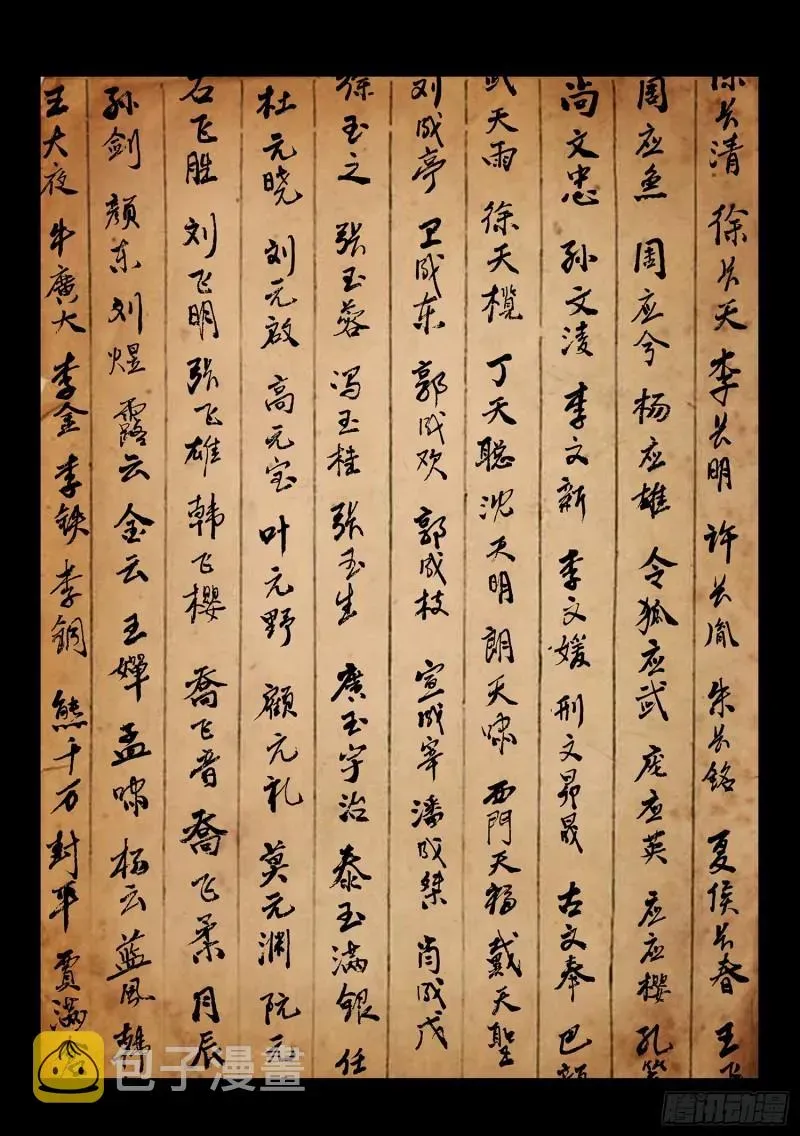 徐长清 徐长天 李长明 许长胤 朱长铭 夏侯长春 王
周应鱼 周应兮 杨应雄 令狐应武 庞应英 应应樱 孔
尚文忠 孙文凌 李文新 李文媛 刑文昴晟 古文奉 巴
武天雨 徐天榄 丁天聪 沈天明 朗天啸 西門天福 戴天聖
刘成亭 卫成东 郭成欢 郭成枝 宣成宰 潘成桀 肖成戊
徐玉之 张玉蓉 冯玉桂 张玉生 廣玉宇治 泰玉满银 任
杜元晓 刘元啟 高元宝 叶元野 顧元礼 莫元渊 阮元
石飞胜 刘飞明 张飞雄 韩飞樱 喬飞音 喬飞柔 月辰
孙剑 颜东 刘煜 露云 金云 王婵 孟啸 杨云 蓝凤
王大夜 牛廣大 李金 李铁 李铜 熊千万 封平 賈满
包子漫畫
腾讯动漫